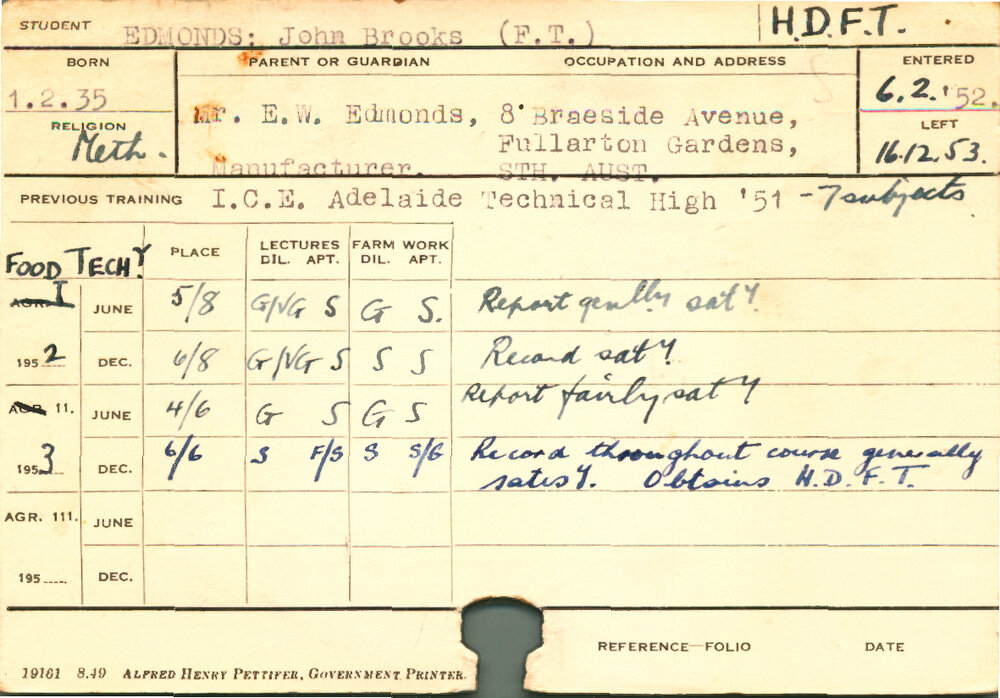 STUDENT EDMONDS: John Brooks (F.T.) H.D.F.T.
BORN PARENT OR GUARDIAN OCCUPATION AND ADDRESS ENTERED
1.2.35 Mr. E.W. Edmonds, 8 Braeside Avenue, 6.2.'52.
RELIGION Fullarton Gardens, LEFT
Meth. Manufacturer. STH. AUST. 16.12.53.
PREVIOUS TRAINING I.C.E. Adelaide Technical High '51 - 7 subjects
PLACE LECTURES FARM WORK
FOOD TECHY DIL. APT. DIL. APT.
AGR. I JUNE 5/8 G/VG S G S. Report genlly saty.
1952 DEC. 6/8 G/VG S S S Record saty.
AGR. 11. JUNE 4/6 G S G S Report fairly saty
1953 DEC. 6/6 S F/S S S/G Record throughout course generally
satisy. Obtains H.D.F.T.
AGR. 111. JUNE
195 DEC.
REFERENCE-FOLIO DATE
19161 8.49 ALFRED HENRY PETTIFER, GOVERNMENT PRINTER.